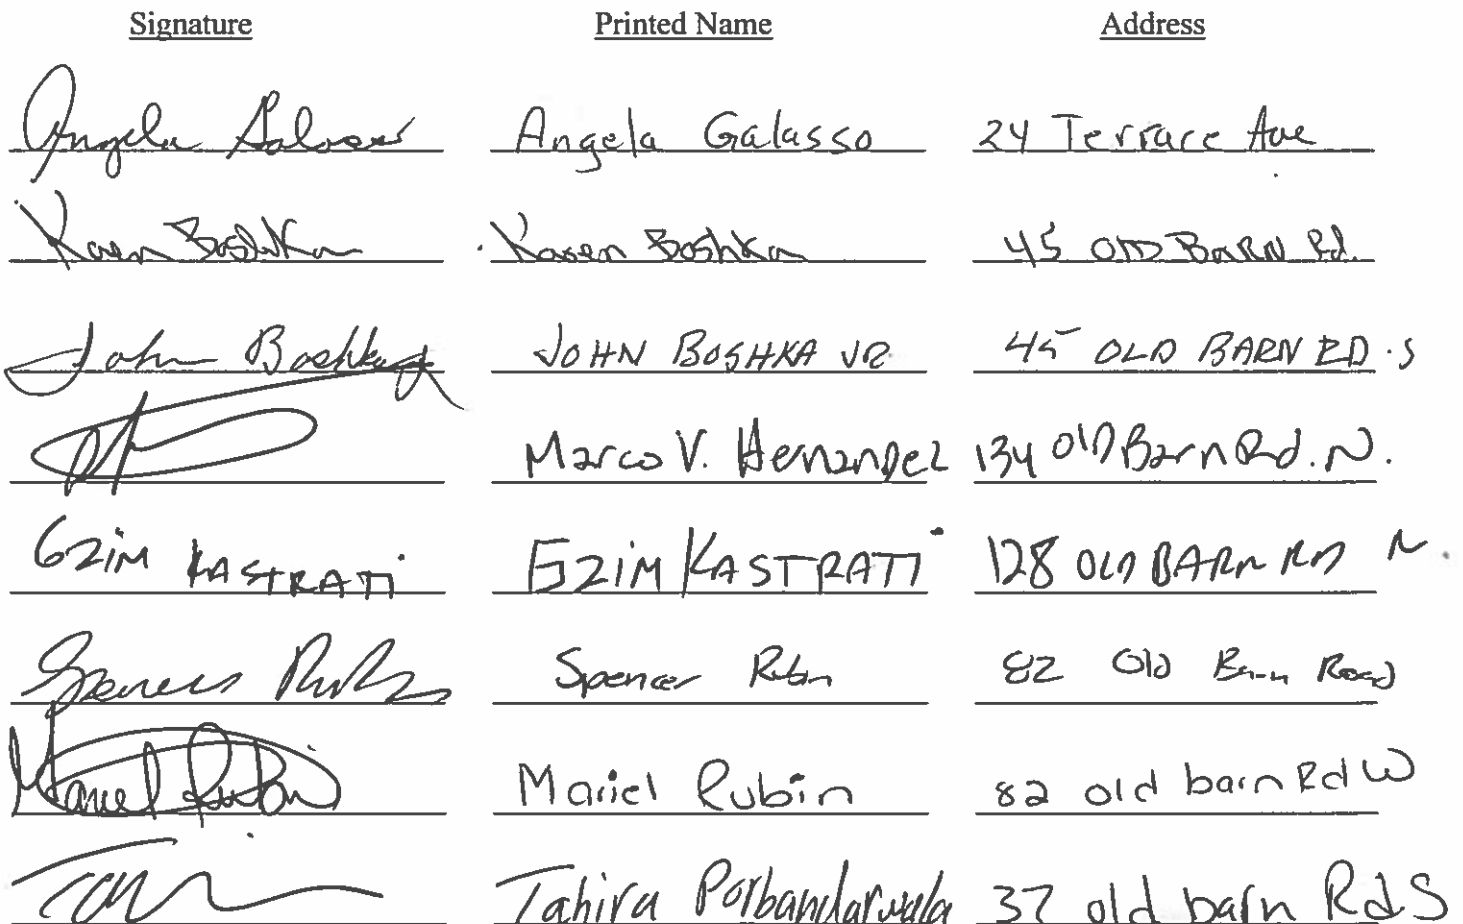 Signature Printed Name Address
Angela Galasso Angela Galasso 24 Terrace Ave
Karen Boshka Karen Boshka 45 OLD BARN Rd.
John Boshka Jr JOHN BOSHKA JR. 45 OLD BARN RD. S
Marco V. Hernandez 134 Old Barn Rd. N.
GZiM KASTRATi GZiM KASTRATi 128 OLD BARN RD N.
Spencer Rubin Spencer Rubin 82 Old Barn Road
Mariel Rubin Mariel Rubin 82 old barn Rd W
Tahira Porbandarwala 37 old barn Rd S